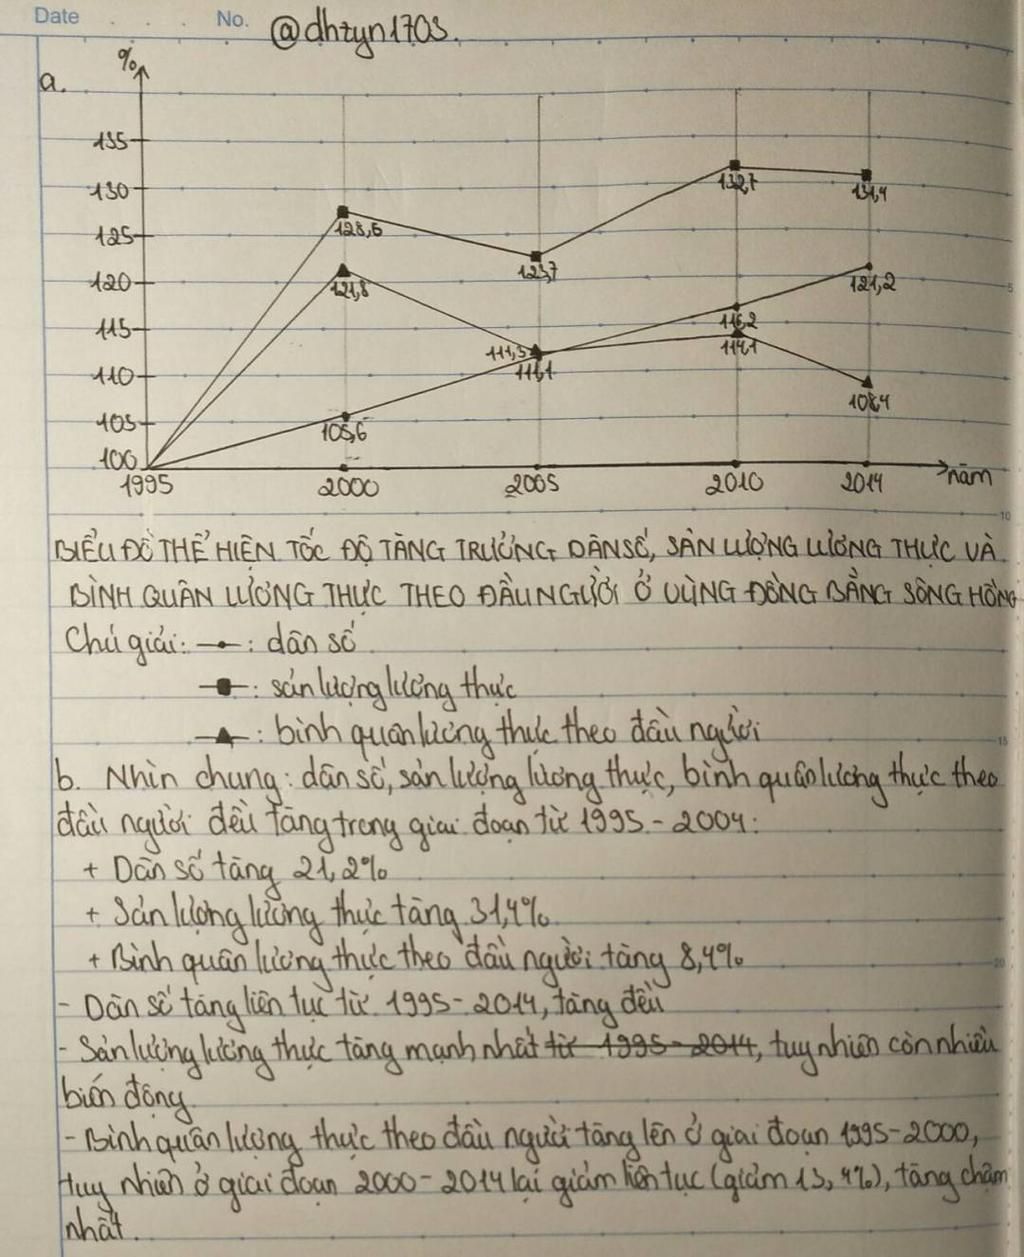 Date . . . No. @dhtyn1703.
%
a.
135
130
125
120
115
110
105
100
128,6
123,7
132,7
131,4
121,8
111,3
114,1
108,4
105,6
111,1
116,2
121,2
1995 2000 2005 2010 2014 năm
BIỂU ĐỒ THỂ HIỆN TỐC ĐỘ TĂNG TRƯỞNG DÂN SỐ, SẢN LƯỢNG LƯƠNG THỰC VÀ
BÌNH QUÂN LƯƠNG THỰC THEO ĐẦU NGƯỜI Ở VÙNG ĐỒNG BẰNG SÔNG HỒNG
Chú giải: : dân số
: sản lượng lương thực
: bình quân lương thực theo đầu người
b. Nhìn chung: dân số, sản lượng lương thực, bình quân lương thực theo
đầu người đều tăng trong giai đoạn từ 1995 - 2004:
+ Dân số tăng 21,2%
+ Sản lượng lương thực tăng 31,4%
+ Bình quân lương thực theo đầu người tăng 8,4%
- Dân số tăng liên tục từ 1995 - 2014, tăng đều
- Sản lượng lương thực tăng mạnh nhất từ 1995 - 2014, tuy nhiên còn nhiều
biến động
- Bình quân lương thực theo đầu người tăng lên ở giai đoạn 1995-2000,
tuy nhiên ở giai đoạn 2000 - 2014 lại giảm liên tục (giảm 13,4%), tăng chậm
nhất.